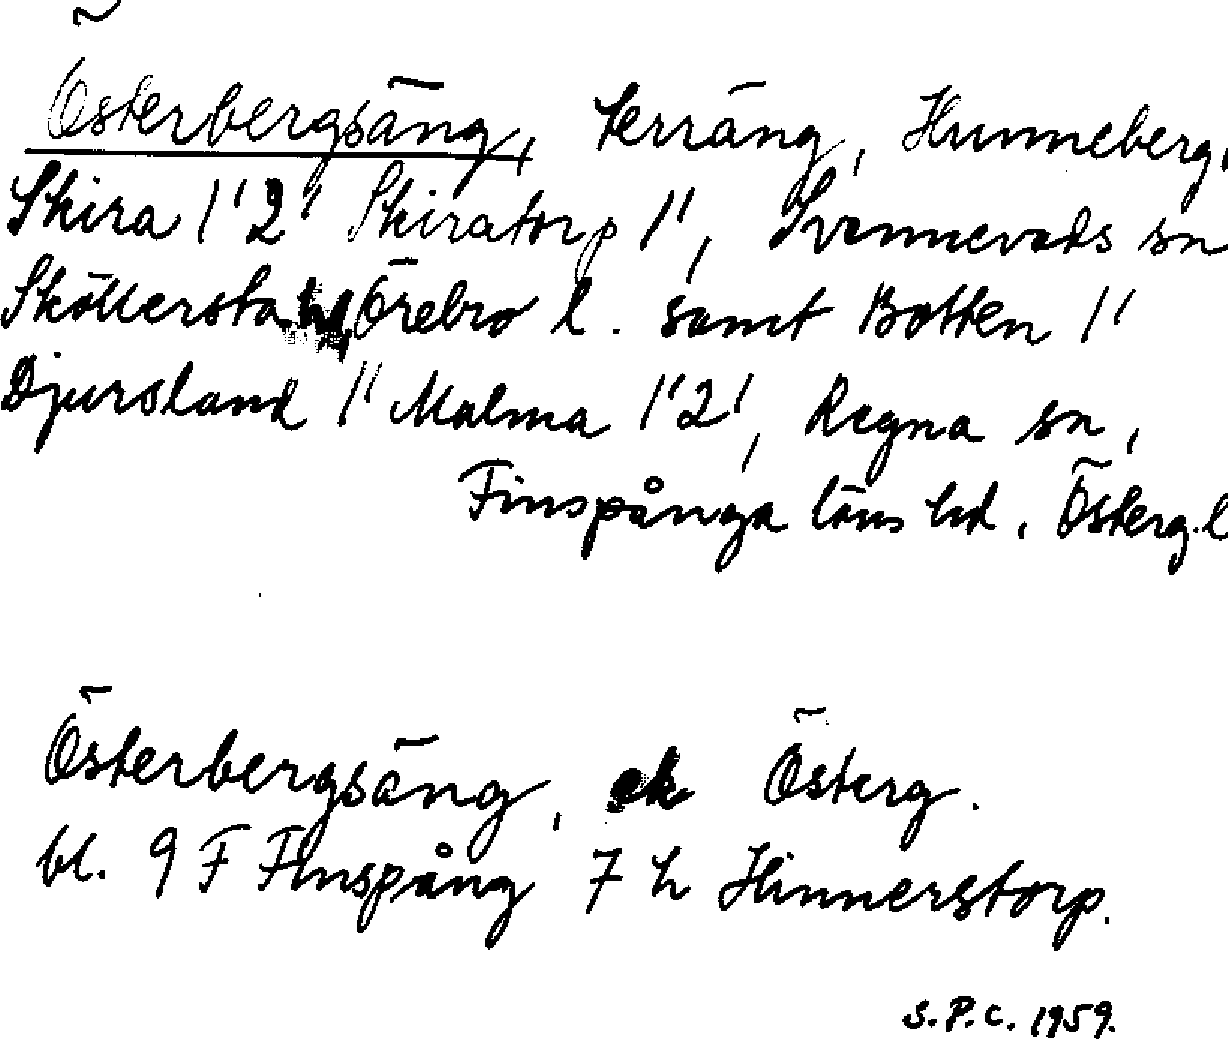 Österbergsäng, terräng, Hunneberg,
Skira 1¹ 2¹ Skiratorp 1¹, Svennevads sn
Sköllersta Örebro l. samt Botten 1¹
Djursland 1¹ Malma 1¹ 2¹, Regna sn,
Finspånga läns hd, Österg. l
Österbergsäng, ek Österg.
bl. 9 F Finspång 7 h Hinnerstorp.
S.P.C. 1959.